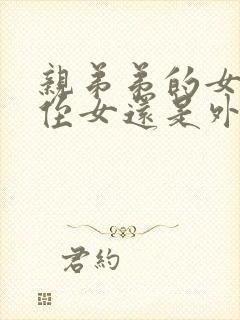 親弟弟的女
侄女還是外
君約